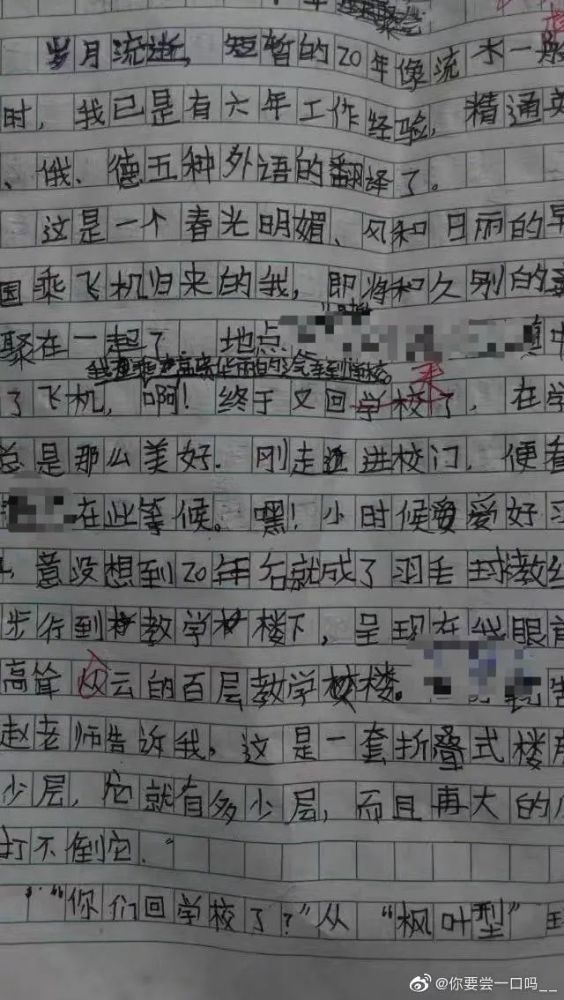 岁月流逝，短暂的20年像流水一般
时，我已是有六年工作经验，精通英
、俄、德五种外语的翻译了。
这是一个春光明媚、风和日丽的早
国乘飞机归来的我，即将和久别的
聚在一起了 地点
了飞机，啊！终于又回学校了，在学
来
总是那么美好。刚走进校门，便看
在此等候。嘿！小时候爱好
，意没想到20年后就成了羽毛球教练
步行到教学楼下，呈现在我眼前
高耸入云的百层教学楼。
赵老师告诉我，这是一套折叠式楼房
少层，它就有多少层，而且再大的
打不倒它。”
“你们回学校了？”从“枫叶型”
@你要尝一口吗__